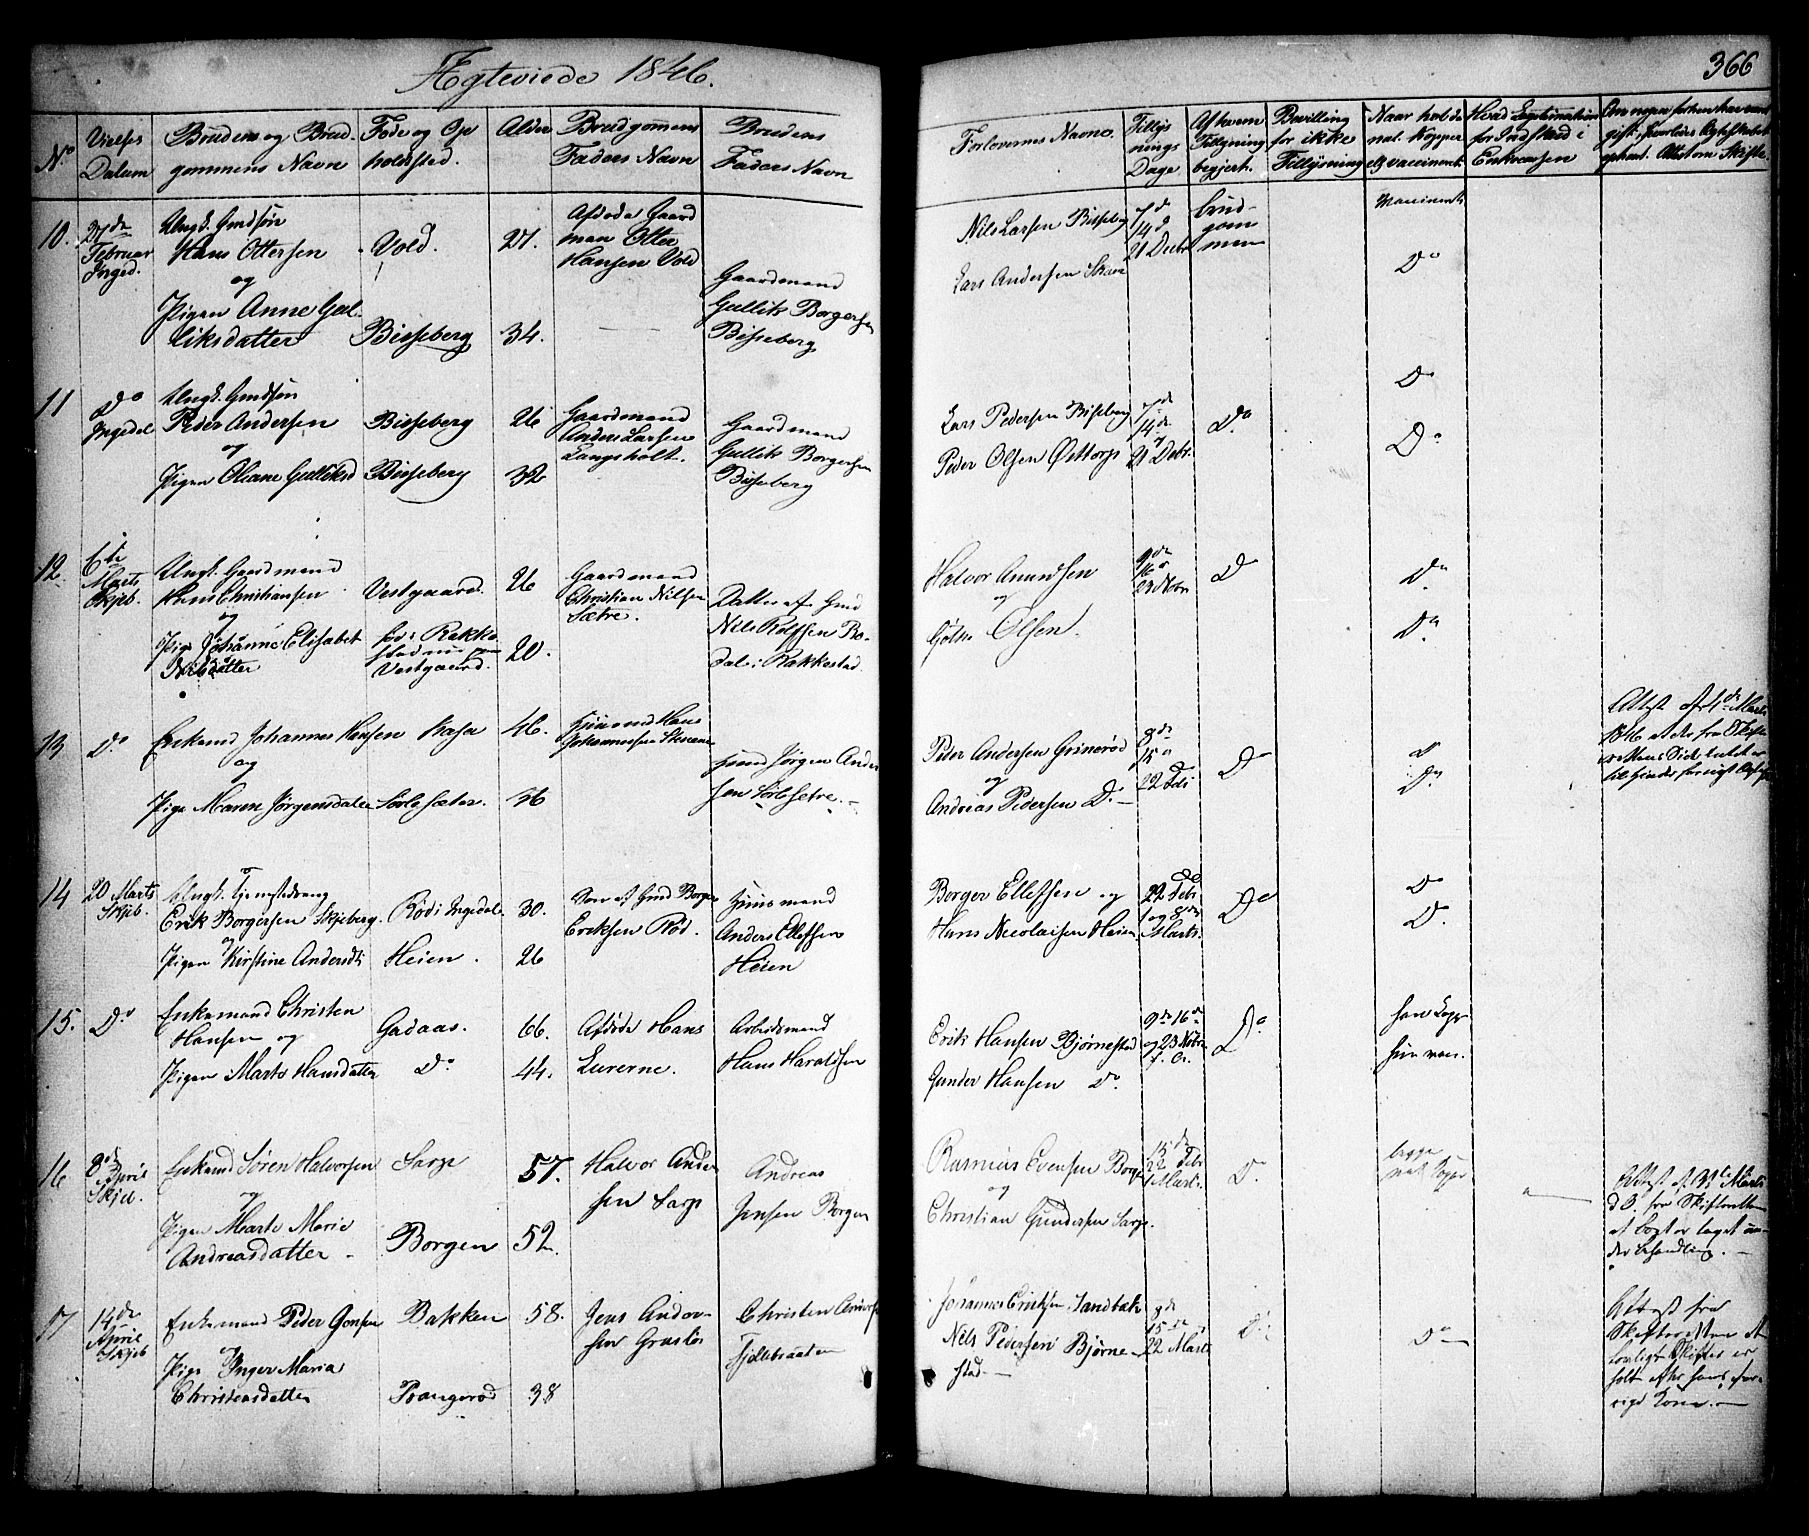 Ægteviede 1846.
366
No
Vielses Datum
Brudens og Brudgommens Navn
Føde og Opholdsted.
Alder
Brudgommens Faders Navn
Brudens Faders Navn
Forlovernes Navne.
Tillysnings Dage
Af hvem Tillysning begjert.
Bevilling for ikke Tillysning
Naar holdte nat. Kopper ell. vaccineret.
10.
27de Februar Inged.
Ungk. Gmdsøn
Hans Ottersen
og
Pigen Anne Gulliksdatter
Vold.
Bisseberg
27.
34.
Afdøde Gaardman Otter Hansen Vold
Gaardmand
Gullik Borgersen
Bisseberg
Nils Larsen Bisseberg
Lars Andersen
7de
14 d
21 Decbr
brudgommen
Vaccineret
Do
11
Do
Ingedal
Ungk. Gmdsøn
Peder Andersen
og
Pigen Oliane Gulliksd
Bisseberg
Bisseberg
26
32
Gaardmand
Anders Larsen
Langsholt.
Gaardmand
Gullik Borgersen
Bisseberg
Lars Pedersen Bisseberg
Peder Olsen Østtorp
7de
14de
21 Debr.
Do
Do
Do
12.
6te
Marts
Skjeb.
Ungk. Gaardmand
Hans Christiansen
og
Pige Johanne Elisabet
Nilsdatter
Vestgaard.
fød i Rakkestad nu paa Vestgaard.
26
20.
Gaardmand
Christian Nilsen
Sætre.
Datter af Gmd
Nils Rolfsen Bodal i Rakkestad
Halvor Amundsen
og
Olsen.
9de
16 d
23 Novbr
Do
Do
Do
13
Do
Enkemd Johannes Hansen
og
Pige Maren Jørgensdatter
Sørlesæter.
46.
36
Huusmd Hans
Johannessen
Huusmd Jørgen Andersen Sørlesetre.
Peder Andersen Grinerød
og
Andreas Pedersen Do.
8de
15 d
22 Febr
Do
Do
Do.
Attest af 1de Marts
1846
14
20 Marts
Skjeb.
Ungk. Tjenestedreng
Erik Borgersen Skjeberg.
og
Pigen Kirstine Andersdt
Rød i Ingedal
Heien.
30.
26
Søn af Gmd Borger
Eriksen Rød.
Huusmand
Anders Ellefsen
Heien
Borger Ellefsen og
Hans Nicolaisen Heien
22 Febr
1 og 8de
Marts.
Do
Do
Do.
15.
Do
Enkemand Christen
Hansen og
Pigen Marte Hansdatter
Gadaas.
Do
66.
44.
Afdøde Hans
Lurerne.
Arbeidsmand
Hans Haraldsen
Erik Hansen Bjørnestad
Gunder Hansen Do.
9de 16de
og 23 Novbr
f. A.
Do
han Kopp
hun vacc.
16.
8de
April
Skjeb.
Enkemd Søren Halvorsen
og
Pigen Marte Marie
Andreasdatter
Sarp
Borgen
57.
52.
Halvor Andersen Sarp
Andreas
Jensen Borgen
Rasmus Evensen Borgen
og
Christian Gundersen Sarp.
15de
22 Febr
1 Marts.
Do.
begge
nat. Kopper
17
14de
April
Skjeb
Enkemand Peder Jonsen
Pige Inger Maria
Christensdatter
Bakken
Prangerød
58.
38
Jens Andersen Graslös
Christen
Johannes Eriksen Sandbæk
Nils Pedersen Bjørnestad.
8de
15de
22 Marts
Do
Do
Attest fra
Skifteretten at
lovligt Skifte er
holt efter hans forrige Kone.